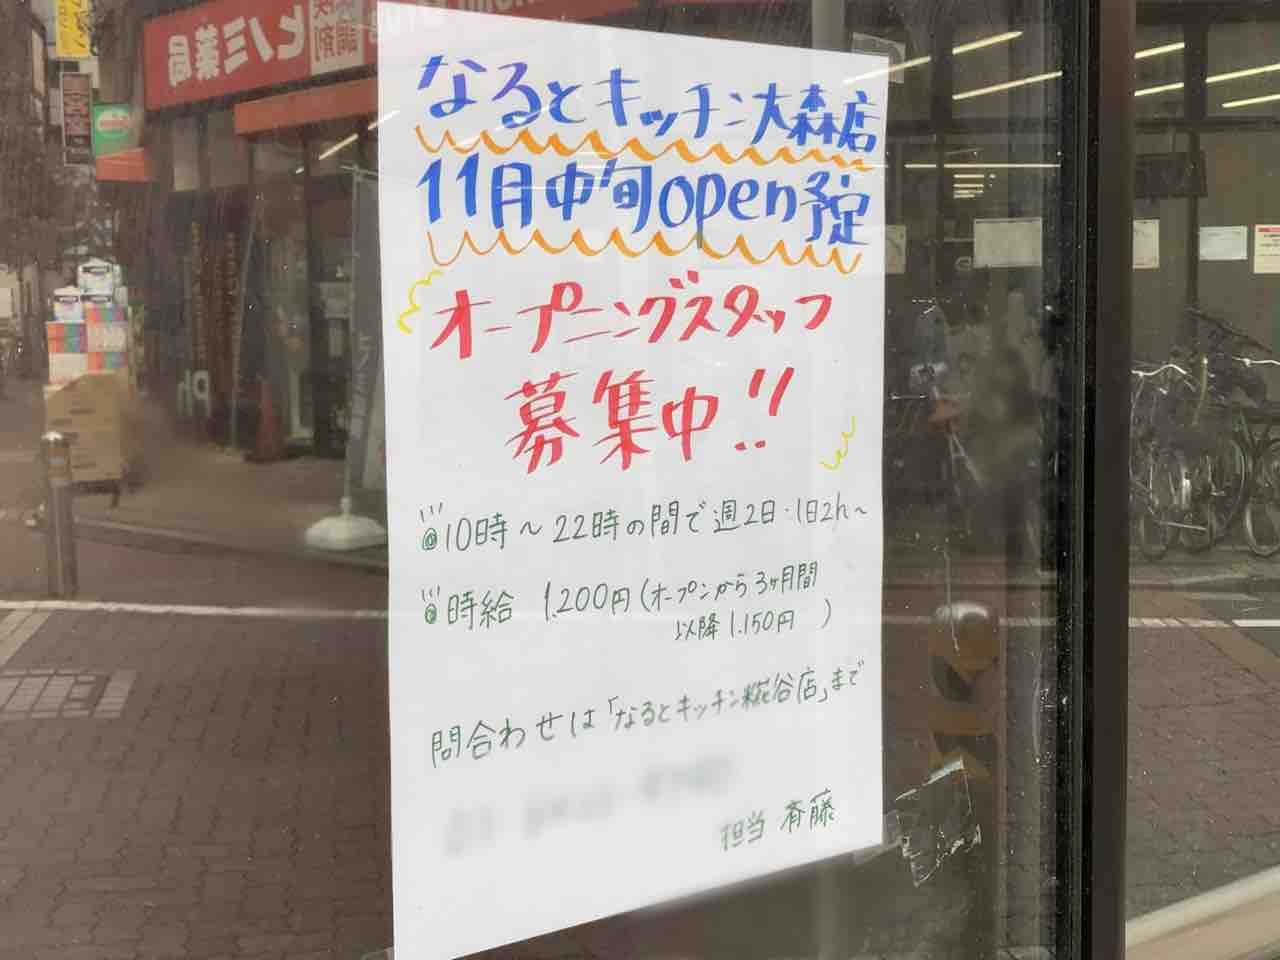 なるとキッチン大森店
11月中旬open予定
オープニングスタッフ
募集中!!
10時〜22時の間で週2日・1日2h〜
時給 1.200円(オープンから3ヶ月間
以降1.150円 )
問合わせは「なるとキッチン糀谷店」まで
担当 斉藤
ヒノミ薬局
調剤